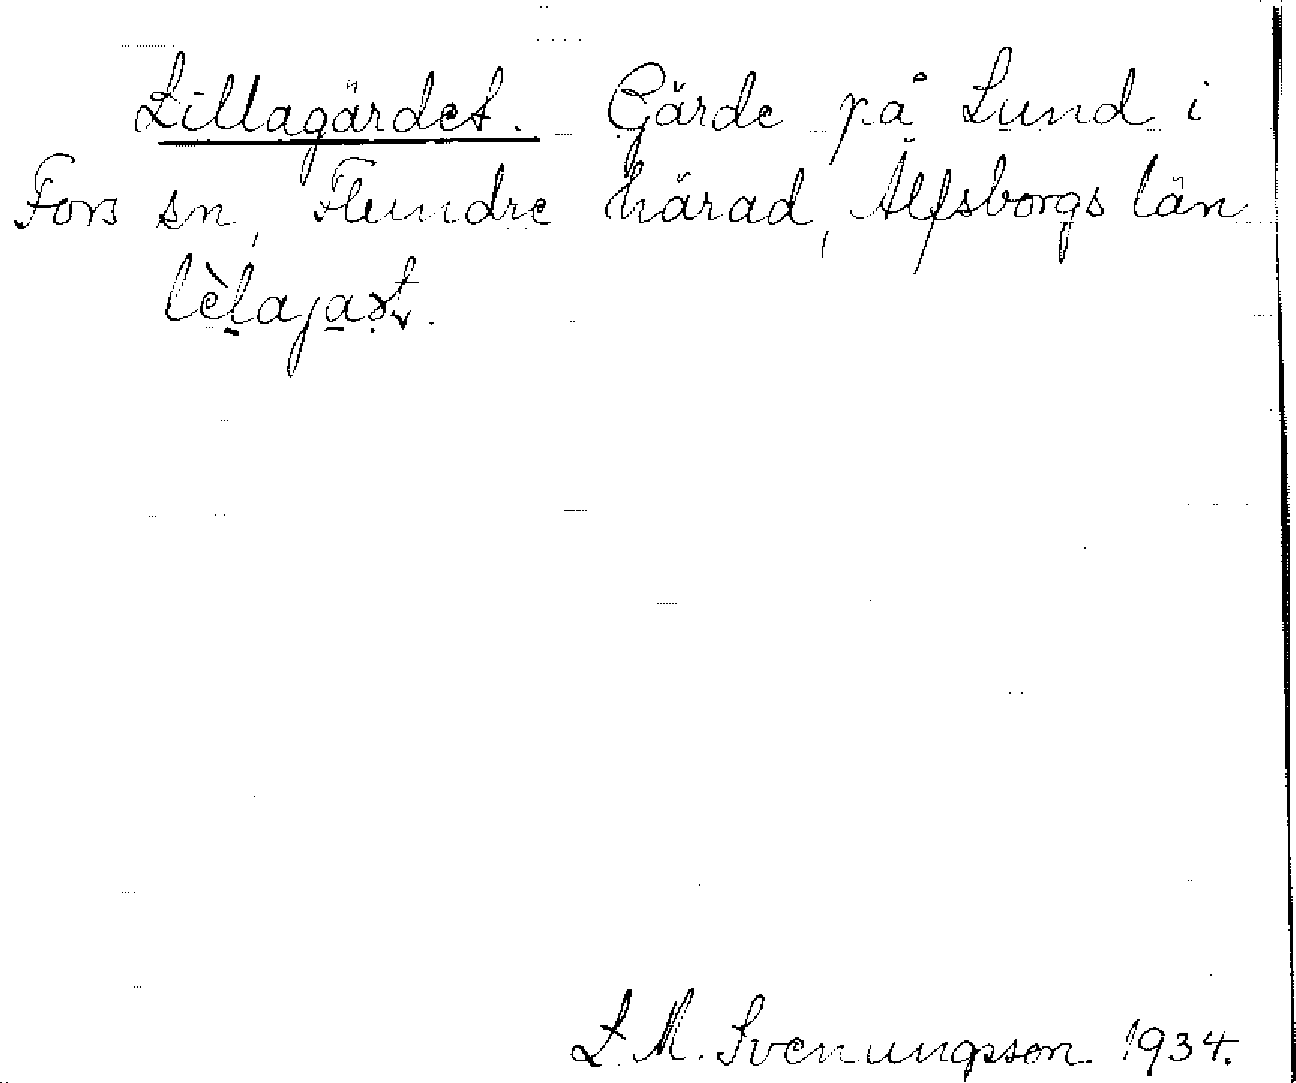 Lillagärdet. Gärde på Lund i
Fors sn, Flundre härad, Älfsborgs län
lèlajaṣt.
L. M. Svenungsson 1934.